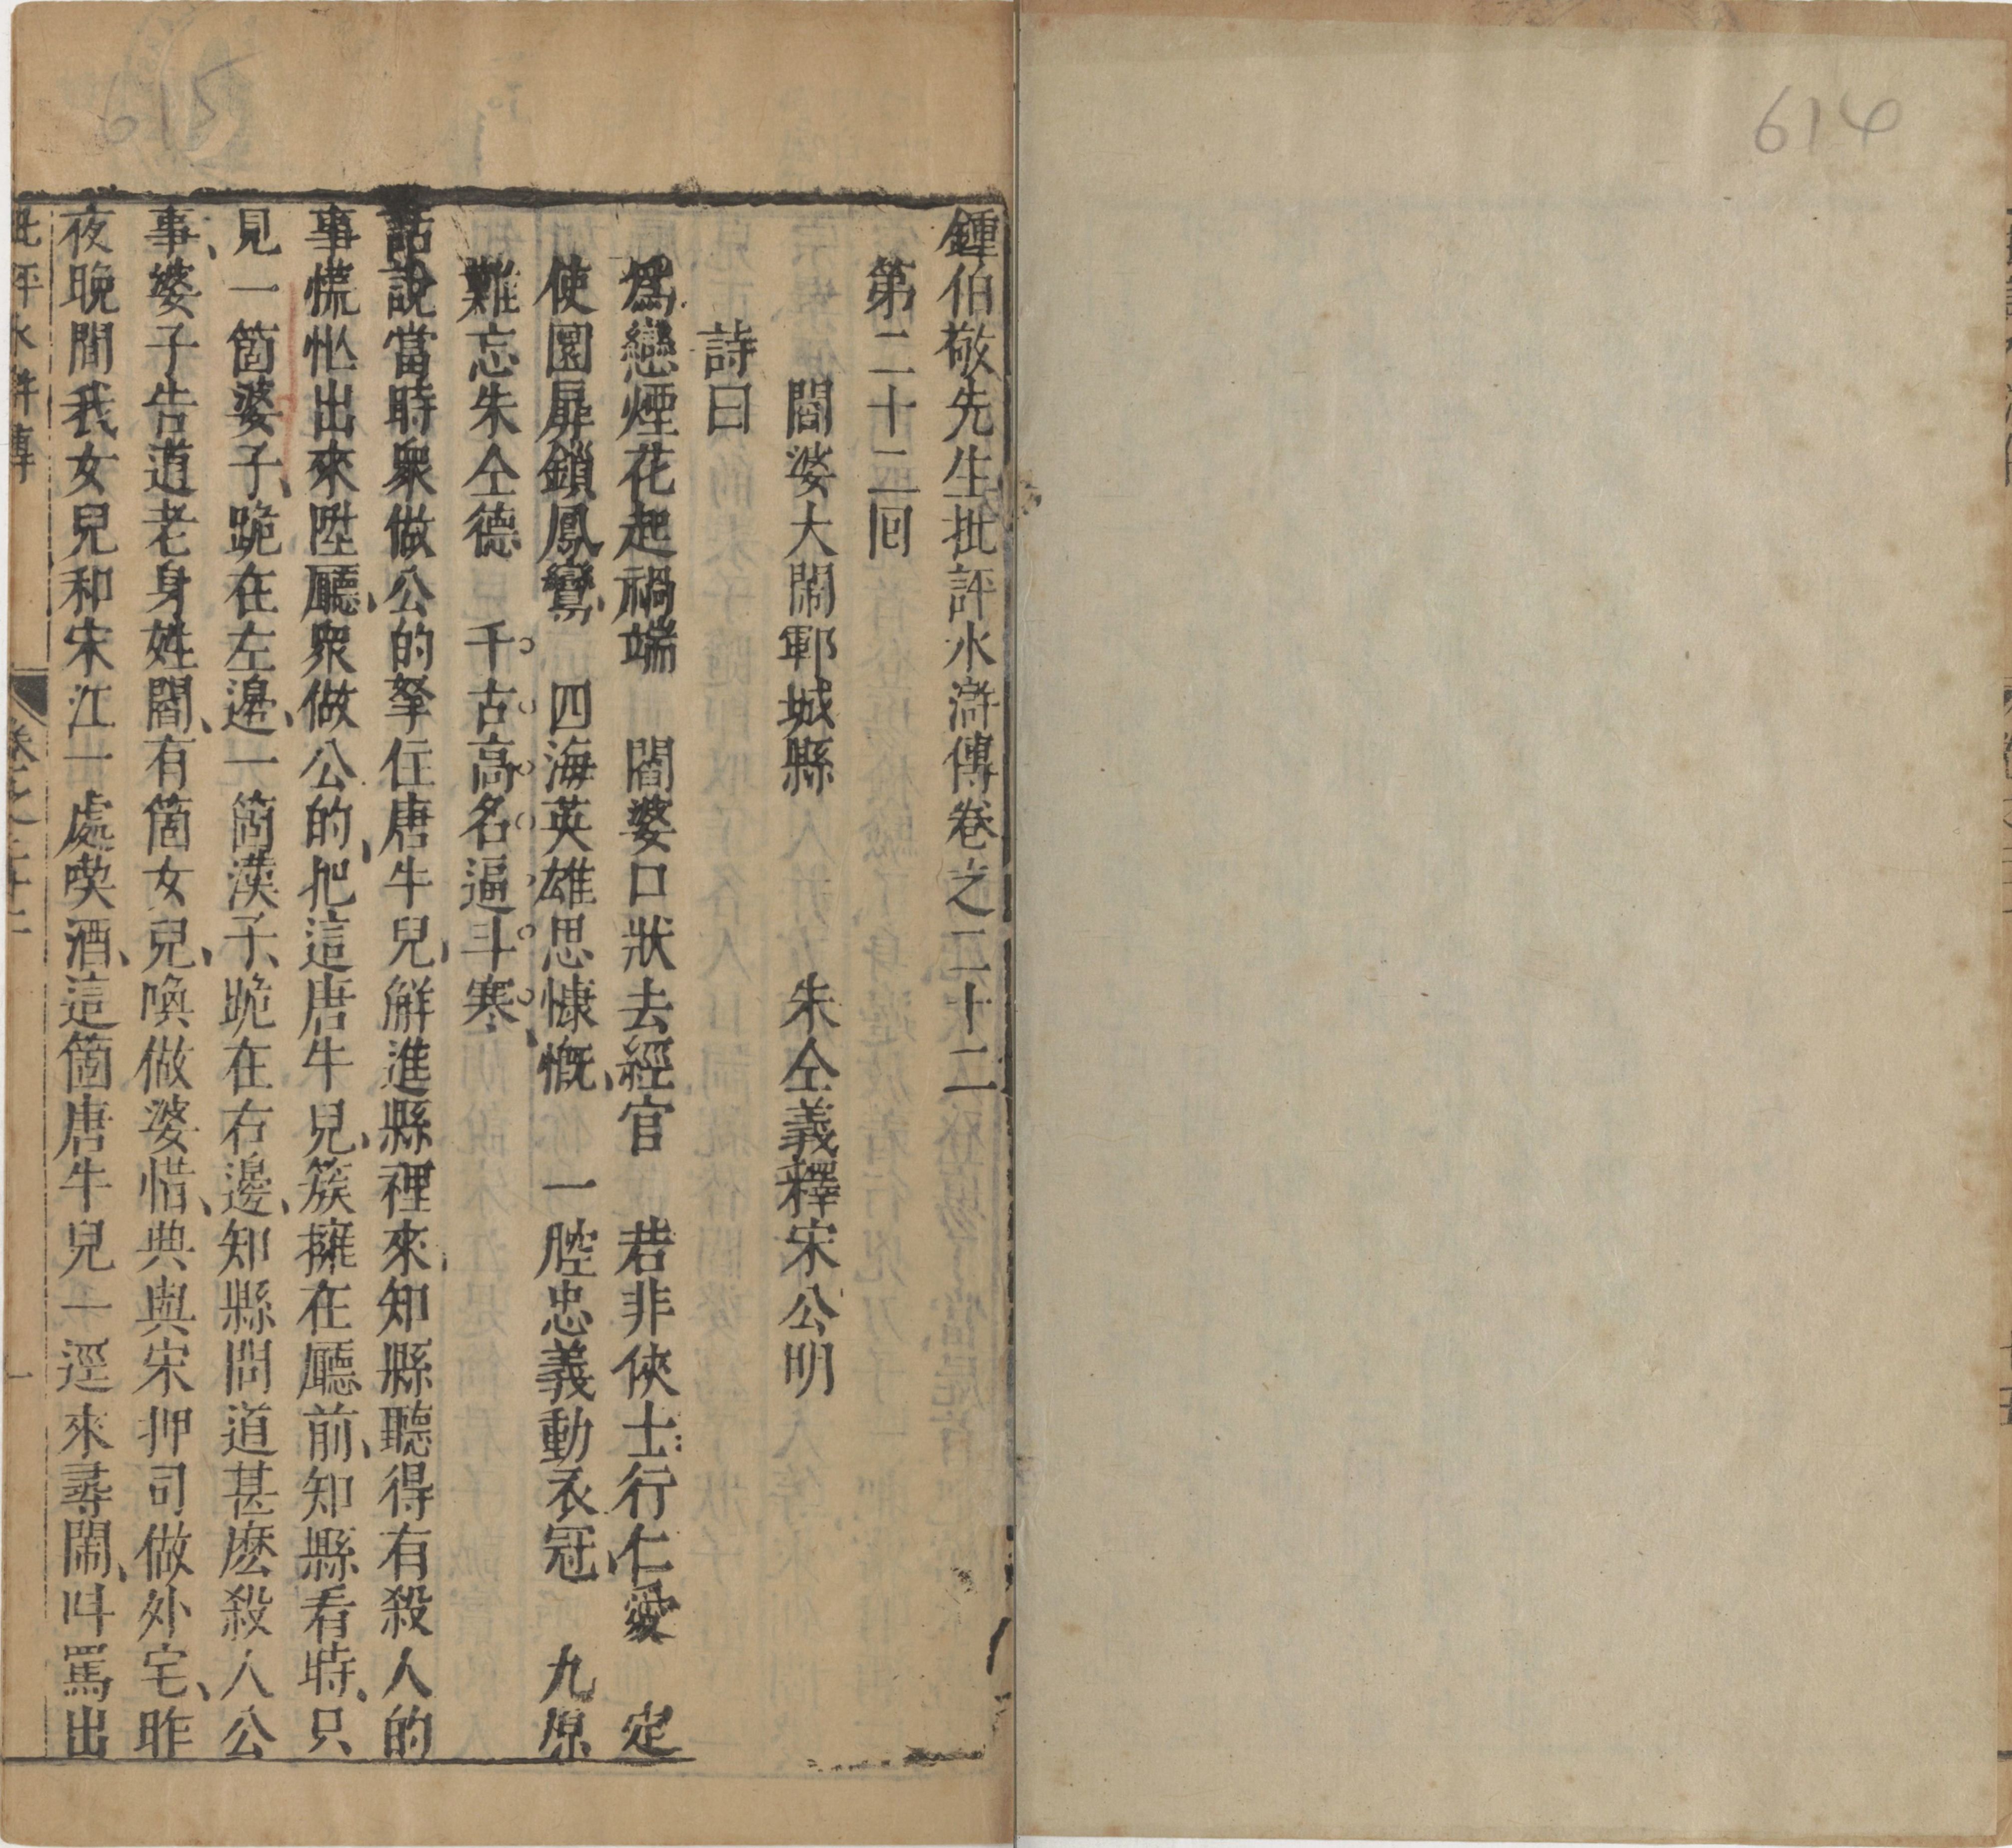 614
615
鍾伯敬先生批評水滸傳卷之二十二
第二十二回
閻婆大鬧鄆城縣　朱仝義釋宋公明
詩曰
爲戀煙花起禍端　閻婆口狀去經官　若非俠士行仁愛　定
使圜扉鎖鳳鸞　四海英雄思慷慨　一腔忠義動衣冠　九原
難忘朱仝德　千古高名逼斗寒
話說當時衆做公的拏住唐牛兒解進縣裡來知縣聽得有殺人的
事慌忙出來陞廳衆做公的把這唐牛兒簇擁在廳前知縣看時只
見一箇婆子跪在左邊一箇漢子跪在右邊知縣問道甚麽殺人公
事婆子告道老身姓閻有箇女兒喚做婆惜典與宋押司做外宅昨
夜晚間我女兒和宋江一處喫酒這箇唐牛兒一逕來尋鬧叫罵出
批評水滸傳　卷之二十二　一